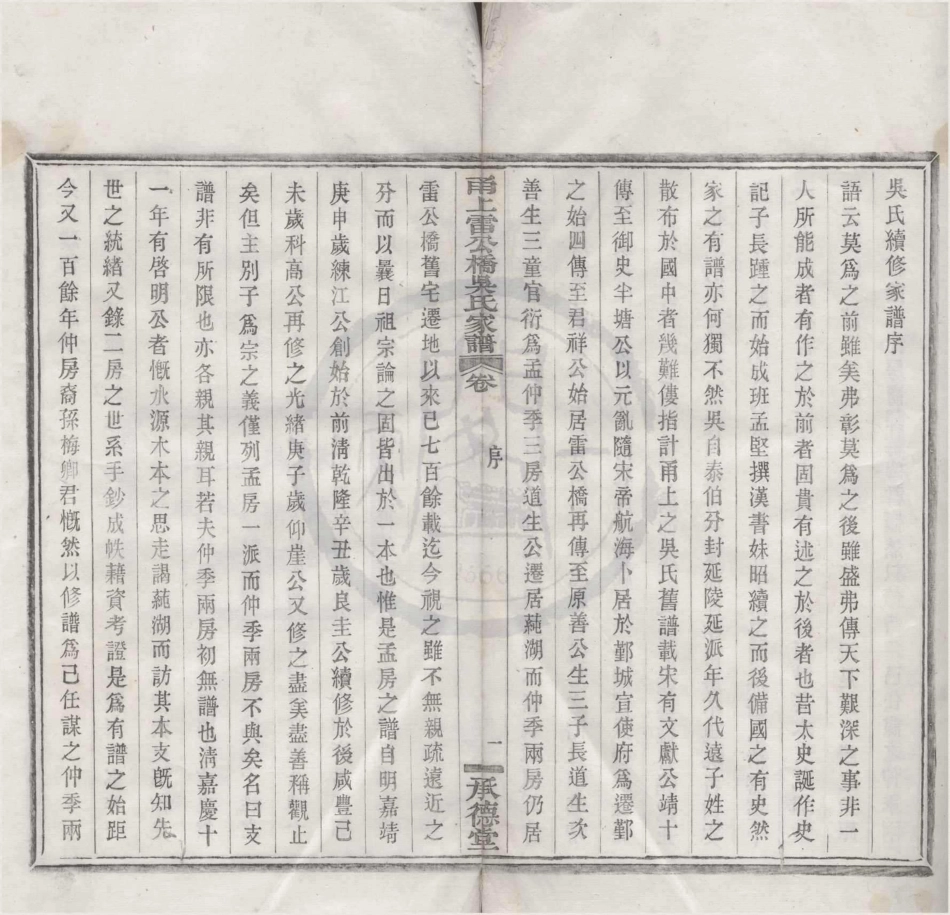 吳氏續修家譜序
語云莫爲之前雖美弗彰莫爲之後雖盛弗傳天下艱深之事非一
人所能成者有作之於前者固貴有述之於後者也昔太史誕作史
記子長踵之而始成班孟堅撰漢書妹昭續之而後備國之有史然
家之有譜亦何獨不然吳自泰伯分封延陵延派年久代遠子姓之
散布於國中者幾難僂指計甬上之吳氏舊譜載宋有文獻公靖十
傳至御史半塘公以元亂隨宋帝航海卜居於鄞城宣使府爲遷鄞
之始四傳至君祥公始居雷公橋再傳至原善公生三子長道生次
善生三童官衍爲孟仲季三房道生公遷居蒓湖而仲季兩房仍居
甬上雷公橋吳氏家譜 卷
序
一
承德堂
雷公橋舊宅遷地以來已七百餘載迄今視之雖不無親疏遠近之
分而以曩日祖宗論之固皆出於一本也惟是孟房之譜自明嘉靖
庚申歲練江公創始於前清乾隆辛丑歲良圭公續修於後咸豐己
未歲科高公再修之光緒庚子歲仰崖公又修之盡美盡善稱觀止
矣但主別子爲宗之義僅列孟房一派而仲季兩房不與矣名曰支
譜非有所限也亦各親其親耳若夫仲季兩房初無譜也清嘉慶十
一年有啓明公者慨水源木本之思走謁蒓湖而訪其本支旣知先
世之統緒又錄二房之世系手鈔成帙藉資考證是爲有譜之始距
今又一百餘年仲房裔孫梅鄉君慨然以修譜爲己任謀之仲季兩